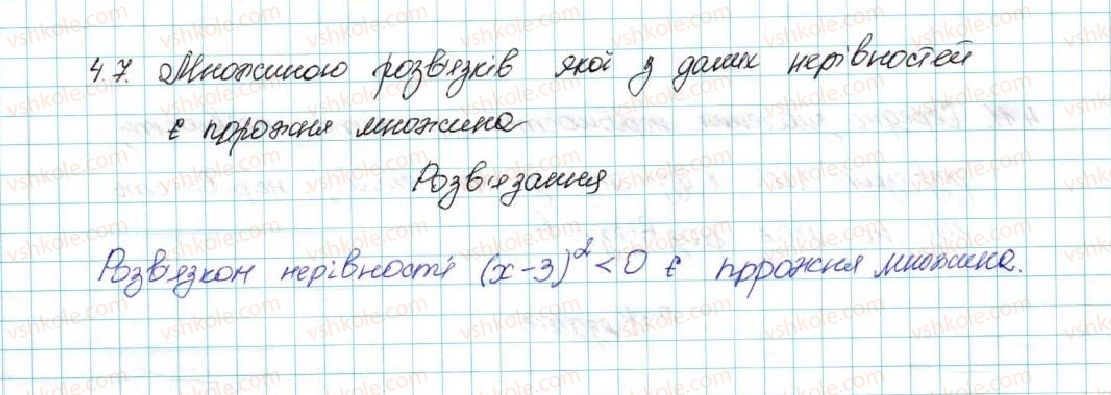 4.7. Множиною розв'язків якої з даних нерівностей
є порожня множина
Розв'язання
Розв'язкон нерівності (x-3)²<0 є порожня множина.